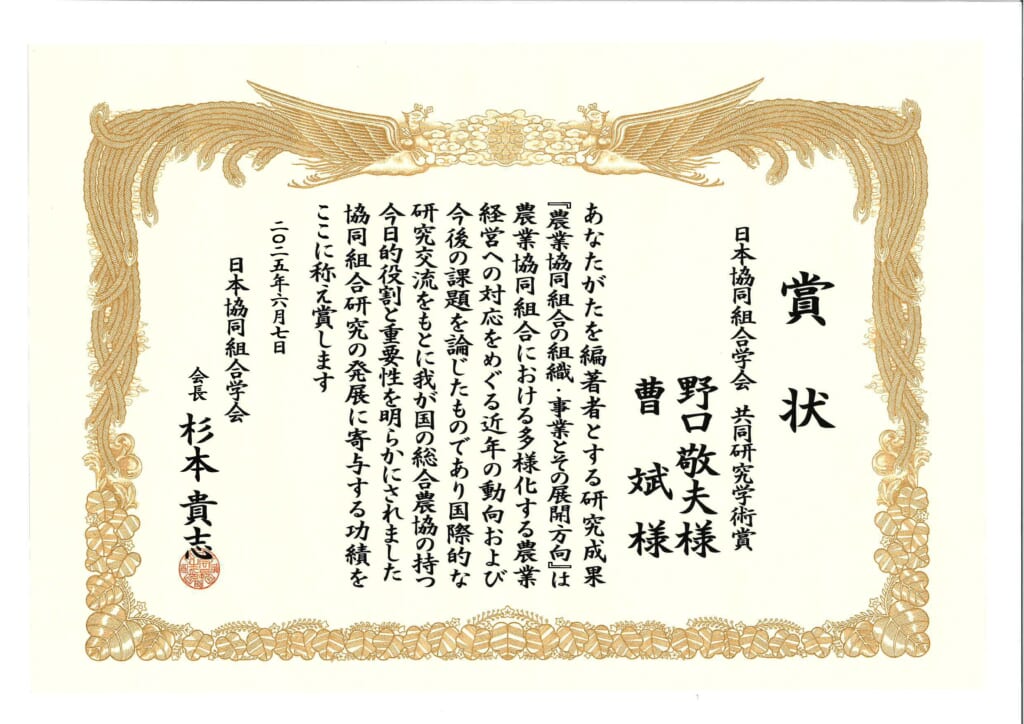 賞状
日本協同組合学会 共同研究学術賞
野口敬夫様
曹斌様
あなたがたを編著者とする研究成果
『農業協同組合の組織・事業とその展開方向』は
農業協同組合における多様化する農業
経営への対応をめぐる近年の動向および
今後の課題を論じたものであり国際的な
研究交流をもとに我が国の総合農協の持つ
今日的役割と重要性を明らかにされました
協同組合研究の発展に寄与する功績を
ここに称え賞します
二〇二五年六月七日
日本協同組合学会
会長 杉本貴志